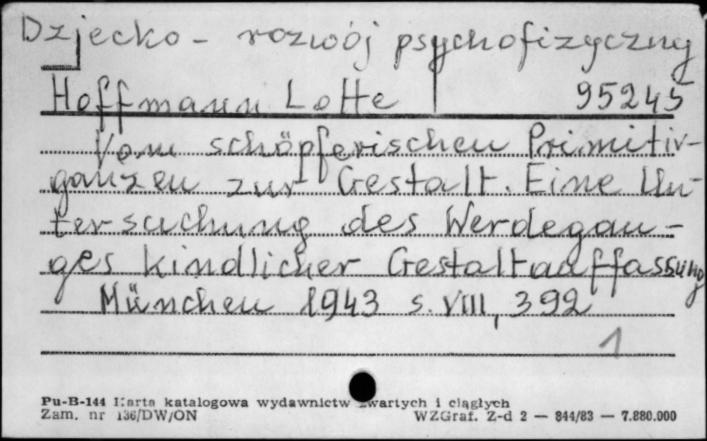 Dziecko - rozwój psychofizyczny
Hoffmann Lotte 95245
Vom schöpferischen Primitiv-
ganzen zur Gestalt. Eine Un-
tersuchung des Werdegan-
ges kindlicher Gestaltauffassung
München 1943 s. VIII, 392
1
Pu-B-144 Karta katalogowa wydawnictw zwartych i ciągłych
Zam. nr 136/DW/ON WZGraf. Z-d 2 — 844/83 — 7.880.000